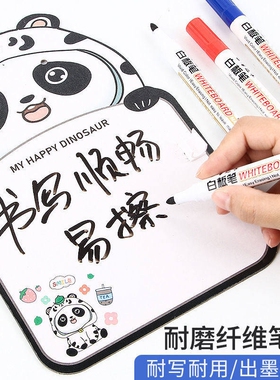 MY HAPPY DINOSAUR
书写顺畅
易擦
白板笔 WHITEBOARD
白板笔 WHITEBOARD
白板笔 WHITEBOARD
SMILE
TEA
耐磨纤维笔
耐写耐用/出墨